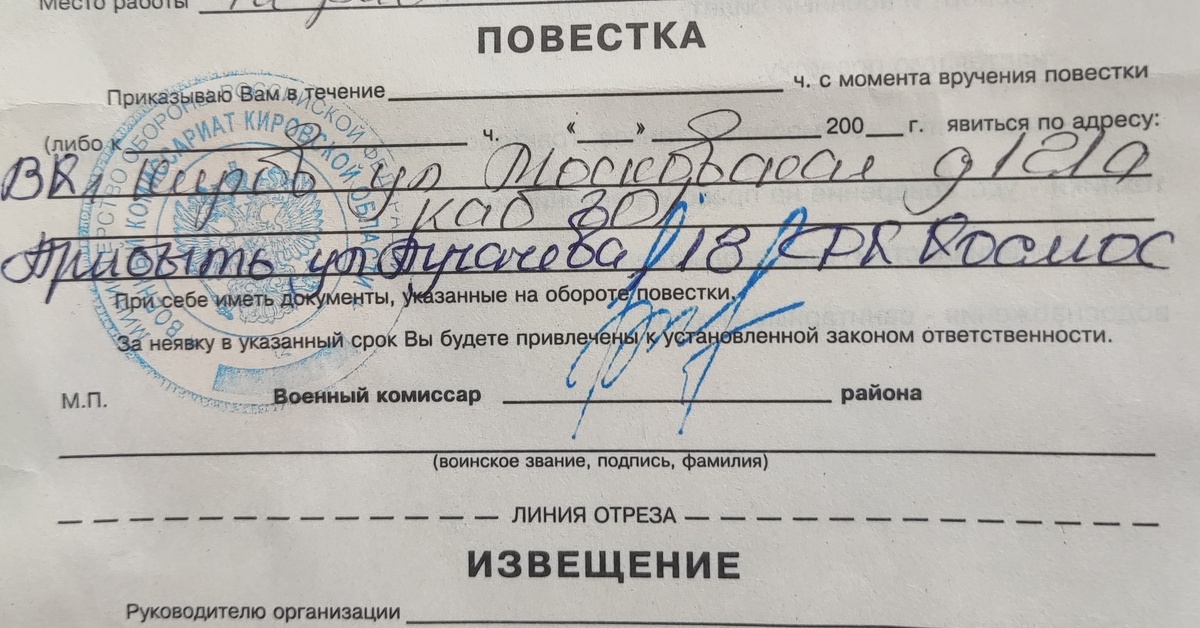 Место работы
ПОВЕСТКА
Приказываю Вам в течение ч. с момента вручения повестки
(либо к ч. « » 200 г. явиться по адресу:
ВК, Киров ул Московская д 121а
каб 301
Прибыть ул Пугачева 18 КРК Космос
При себе иметь документы, указанные на обороте повестки.
За неявку в указанный срок Вы будете привлечены к установленной законом ответственности.
М.П. Военный комиссар района
(воинское звание, подпись, фамилия)
ЛИНИЯ ОТРЕЗА
ИЗВЕЩЕНИЕ
Руководителю организации
МИНИСТЕРСТВО ОБОРОНЫ РОССИЙСКОЙ ФЕДЕРАЦИИ
ВОЕННЫЙ КОМИССАРИАТ КИРОВСКОЙ ОБЛАСТИ